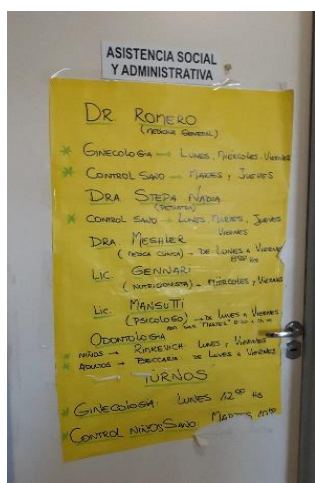 ASISTENCIA SOCIAL
Y ADMINISTRATIVA
DR. ROMERO
(MEDICINA GENERAL)
* GINECOLOGIA → LUNES, MIERCOLES, VIERNES
* CONTROL SANO → MARTES Y JUEVES
DRA. STEPA NADIA
(PEDIATRA)
* CONTROL SANO → LUNES, MARTES, JUEVES
VIERNES
DRA. MESHLER
(MEDICA CLINICA) - DE LUNES A VIERNES
HS
LIC. GENNARI
(NUTRICIONISTA) - MIERCOLES Y VIERNES
LIC. MANSUTTI
(PSICOLOGO) → DE LUNES A VIERNES
ODONTOLOGIA
* NIÑOS → RINKEVICH LUNES Y VIERNES
* ADULTOS → BECCARIA DE LUNES A VIERNES
TURNOS
* GINECOLOGIA: LUNES 12⁰⁰ HS
* CONTROL NIÑOS SANO: MARTES